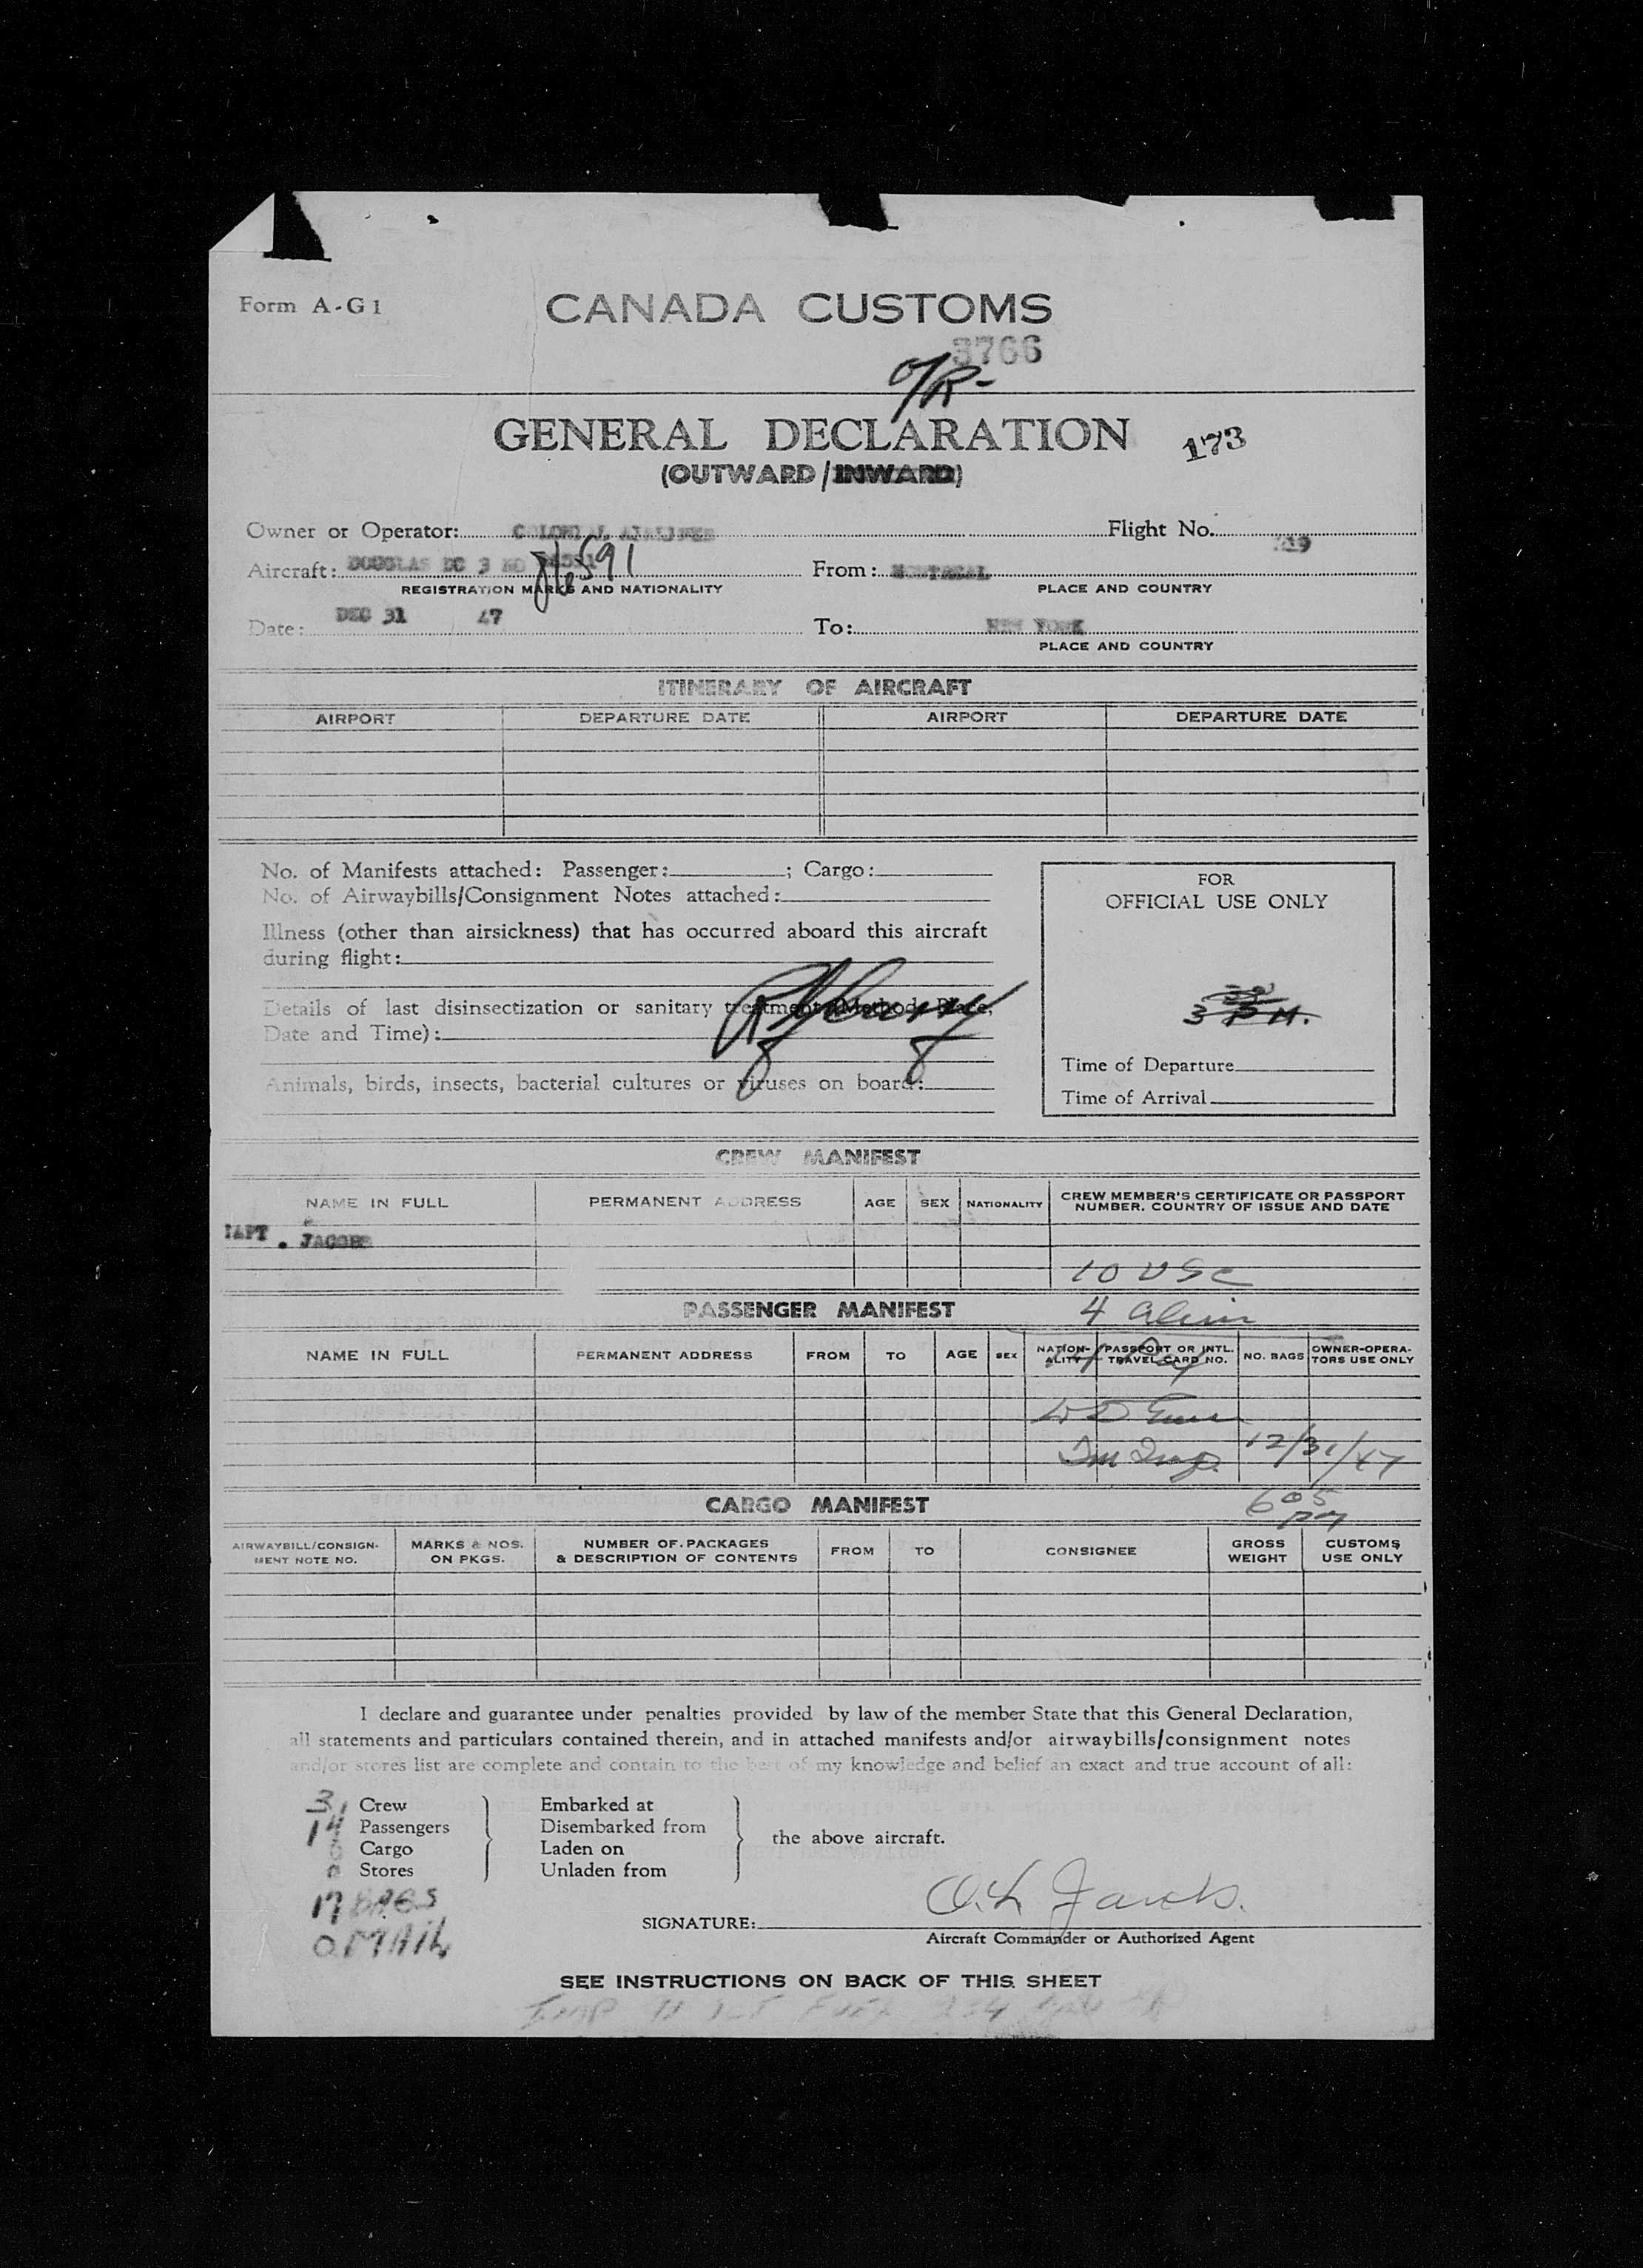 Form A-G 1
CANADA CUSTOMS
3766
O/R-
GENERAL DECLARATION
173
(OUTWARD/INWARD)
Owner or Operator: COLONIAL AIRLINES Flight No.
Aircraft: DOUGLAS DC 3 NO 86591 From: MONTREAL
REGISTRATION MARKS AND NATIONALITY PLACE AND COUNTRY
Date: DEC 31 47 To: NEW YORK
PLACE AND COUNTRY
ITINERARY OF AIRCRAFT
AIRPORT DEPARTURE DATE AIRPORT DEPARTURE DATE
No. of Manifests attached: Passenger: ; Cargo:
No. of Airwaybills/Consignment Notes attached:
Illness (other than airsickness) that has occurred aboard this aircraft
during flight:
Details of last disinsectization or sanitary treatment (Method, Place,
Date and Time):
Animals, birds, insects, bacterial cultures or viruses on board:
FOR
OFFICIAL USE ONLY
3 P M.
Time of Departure
Time of Arrival
CREW MANIFEST
NAME IN FULL PERMANENT ADDRESS AGE SEX NATIONALITY CREW MEMBER'S CERTIFICATE OR PASSPORT NUMBER, COUNTRY OF ISSUE AND DATE
CAPT . JACOBS
10 USC
PASSENGER MANIFEST
4 alien
NAME IN FULL PERMANENT ADDRESS FROM TO AGE SEX NATION-ALITY PASSPORT OR INTL. TRAVEL CARD NO. NO. BAGS OWNER-OPERA-TORS USE ONLY
12/31/47
CARGO MANIFEST
6 05 pm
AIRWAYBILL/CONSIGN-MENT NOTE NO. MARKS & NOS. ON PKGS. NUMBER OF PACKAGES & DESCRIPTION OF CONTENTS FROM TO CONSIGNEE GROSS WEIGHT CUSTOMS USE ONLY
I declare and guarantee under penalties provided by law of the member State that this General Declaration,
all statements and particulars contained therein, and in attached manifests and/or airwaybills/consignment notes
and/or stores list are complete and contain to the best of my knowledge and belief an exact and true account of all:
3 Crew Embarked at
14 Passengers Disembarked from
0 Cargo Laden on
0 Stores Unladen from
the above aircraft.
17 BAGS
O. MAIL
SIGNATURE: O.L Jacobs.
Aircraft Commander or Authorized Agent
SEE INSTRUCTIONS ON BACK OF THIS SHEET